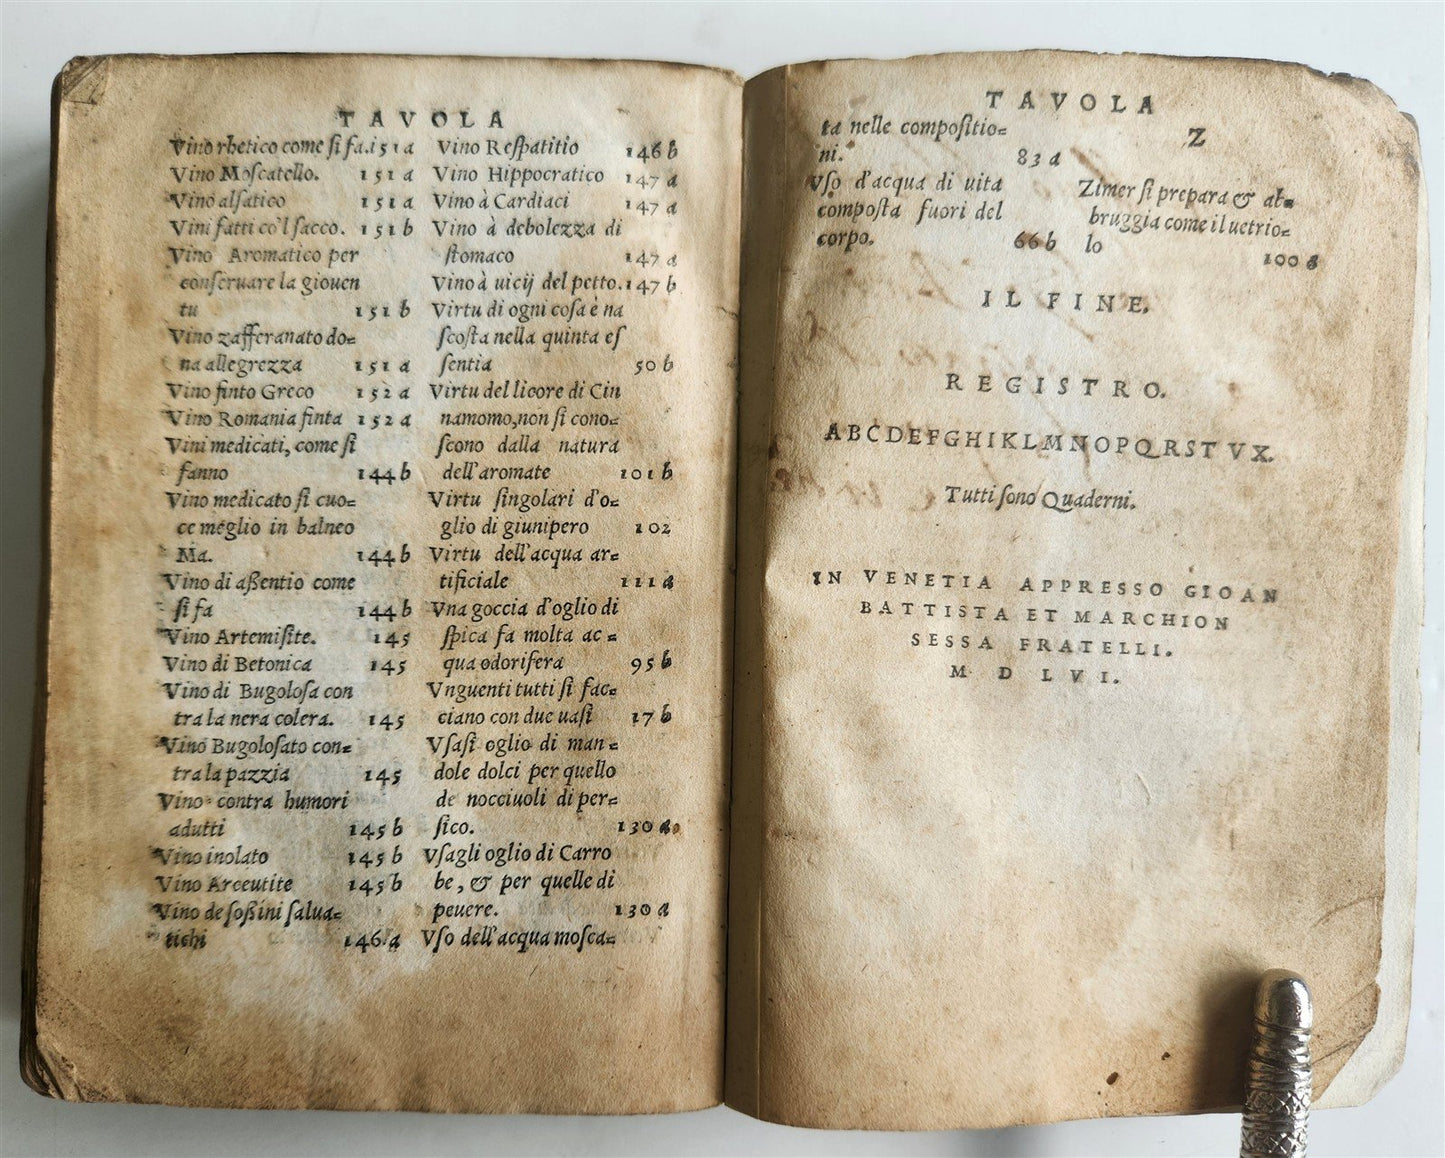 TAVOLA
Vino rhetico come si fa. 151 a
Vino Moscatello. 151 a
Vino alsatico 151 a
Vini fatti co'l sacco. 151 b
Vino Aromatico per
conseruare la giouen
tu 151 b
Vino zafferanato do=
na allegrezza 151 a
Vino finto Greco 152 a
Vino Romania finta 152 a
Vini medicati, come si
fanno 144 b
Vino medicato si cuo=
ce meglio in balneo
Ma. 144 b
Vino di aßentio come
si fa 144 b
Vino Artemisite. 145
Vino di Betonica 145
Vino di Bugolosa con
tra la nera colera. 145
Vino Bugolosato con=
tra la pazzia 145
Vino contra humori
adutti 145 b
Vino inolato 145 b
Vino Arceutite 145 b
Vino de soßini salua=
tichi 146 a
Vino Respatitio 146 b
Vino Hippocratico 147 a
Vino à Cardiaci 147 a
Vino à debolezza di
stomaco 147 a
Vino à uicij del petto. 147 b
Virtu di ogni cosa è na
scosta nella quinta es
sentia 50 b
Virtu del licore di Cin
namomo, non si cono=
scono dalla natura
dell'aromate 101 b
Virtu singolari d'o=
glio di giunipero 102
Virtu dell'acqua ar=
tificiale 111 a
Vna goccia d'oglio di
spica fa molta ac=
qua odorifera 95 b
Vnguenti tutti si fac=
ciano con due uasi 17 b
Vsasi oglio di man=
dole dolci per quello
de nocciuoli di per=
sico. 130 a
Vsagli oglio di Carro
be, & per quelle di
peuere. 130 a
Vso dell'acqua mosca=
TAVOLA
ta nelle compositio=
ni. 83 a
Vso d'acqua di uita
composta fuori del
corpo. 66 b
Z
Zimer si prepara & ab=
bruggia come il uetrio=
lo 100 a
IL FINE.
REGISTRO.
ABCDEFGHIKLMNOPQRSTVX.
Tutti sono Quaderni.
IN VENETIA APPRESSO GIOAN
BATTISTA ET MARCHION
SESSA FRATELLI.
M D LVI.